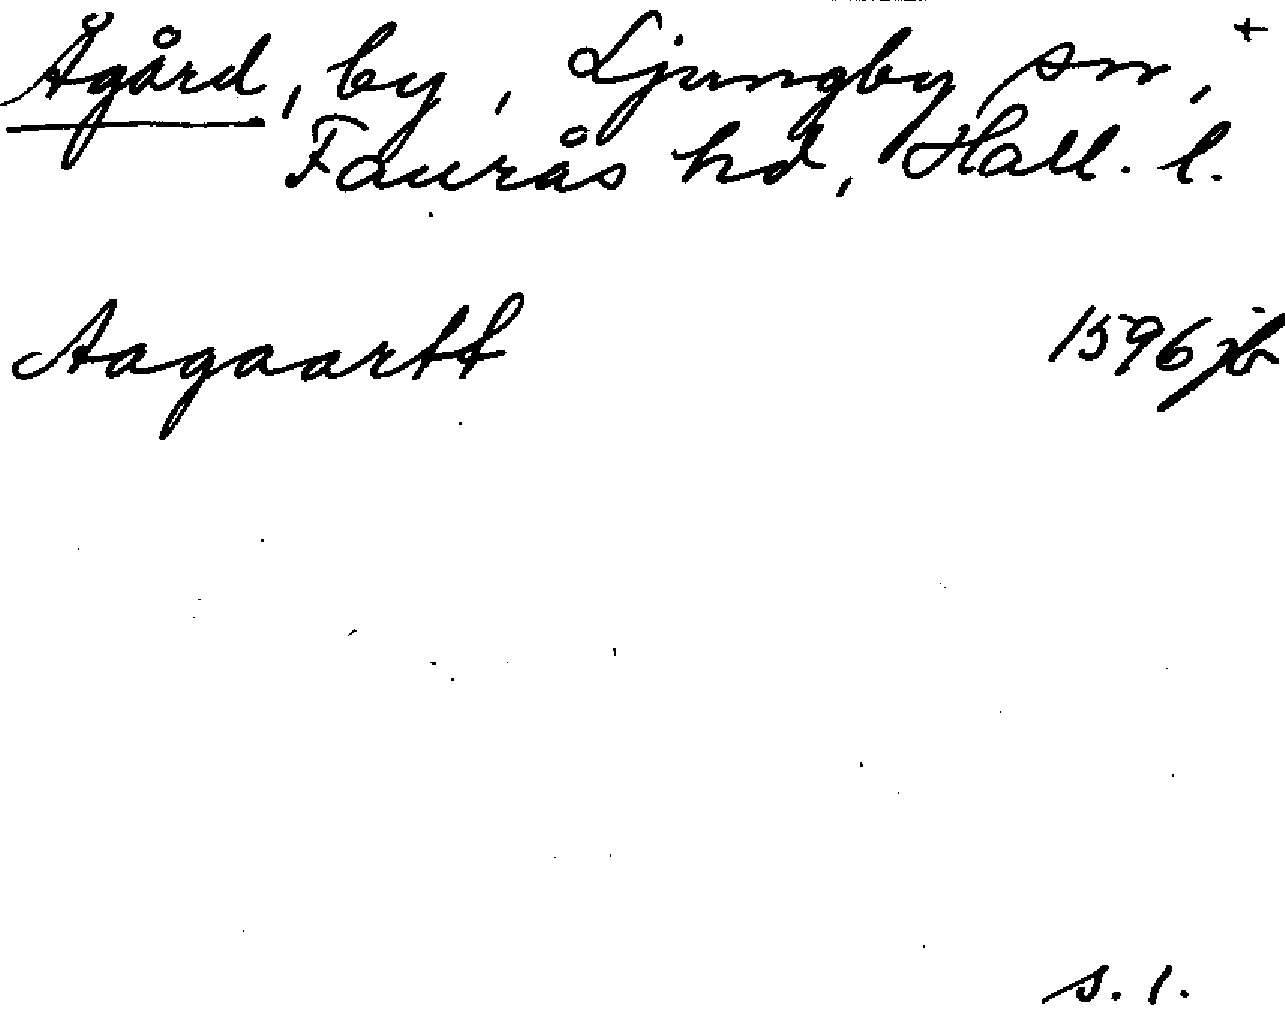 Ågård, by, Ljungby sn, +
Faurås hd, Hall. l.
Aagaartt 1596 jb
s. 1.